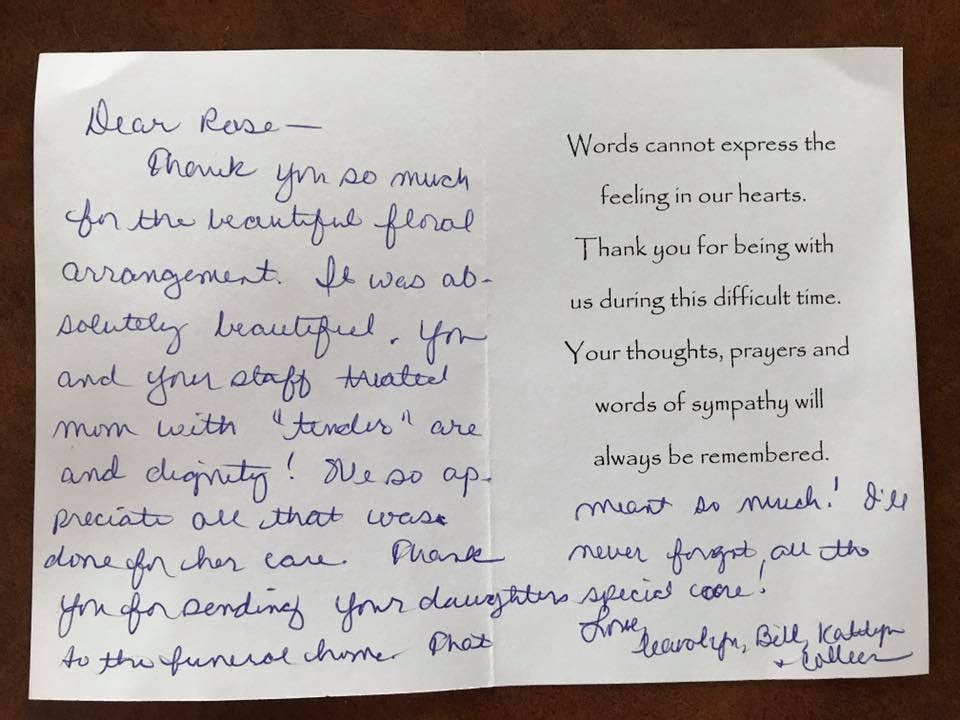 Dear Rose—
Thank you so much
for the beautiful floral
arrangement. It was ab-
solutely beautiful. You
and your staff treated
mom with "tender" are
and dignity! We so ap-
preciate all that was
done for her care. Thank
you for sending your daughters
to the funeral home. That
Words cannot express the
feeling in our hearts.
Thank you for being with
us during this difficult time.
Your thoughts, prayers and
words of sympathy will
always be remembered.
meant so much! I'll
never forgot all the
special care!
Love,
Bill, Katelyn
+ Colleen